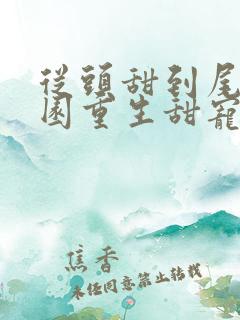 從頭甜到尾
園重生甜寵
焦香
未經同意禁止轉載